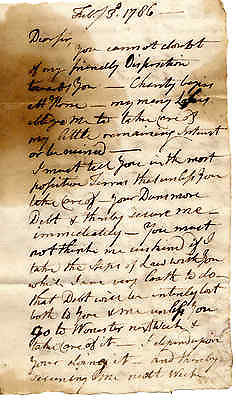 Feby 3d. 1786 —
Dear Sir,
You cannot doubt
of my friendly Disposition
towards You — Charity begins
At Home — my many Losses
oblige me to take care of
my little remaining Interest
or be ruined —
I must tell You in the most
positive Terms that unless You
take care of — Your Dunmore
Debt & thereby secure me —
immediately — You must
not think me unkind if I
take the Steps of Law with You
which I am very loath to do
that Debt will be intirely lost
both to You & me unless You
go to Worcester next Week &
take care of it — I depend upon
Your doing it and thereby
securing me next Week